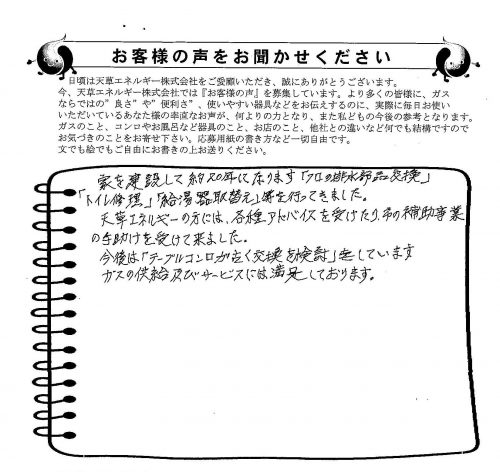 お客様の声をお聞かせください
日頃は天草エネルギー株式会社をご愛顧いただき、誠にありがとうございます。
今、天草エネルギー株式会社では『お客様の声』を募集しています。より多くの皆様に、ガス
ならではの”良さ”や”便利さ”、使いやすい器具などをお伝えするのに、実際に毎日お使い
いただいているあなた様の率直なお声が、何よりの力となり、また私どもの今後の参考となります。
ガスのこと、コンロやお風呂など器具のこと、お店のこと、他社との違いなど何でも結構ですので
お気づきのことをお寄せ下さい。応募用紙の書き方など一切自由です。
文でも絵でもご自由にお書きの上お送りください。
家を建設して約20年になります「フロの排水部品交換」
「トイレ修理」「給湯器取替え」等を行ってきました。
天草エネルギーの方には、各種アドバイスを受けたり、市の補助事業
の手助けを受けて来ました。
今後は「テーブルコンロが古く交換を検討」をしています
ガスの供給及びサービスには満足しております。